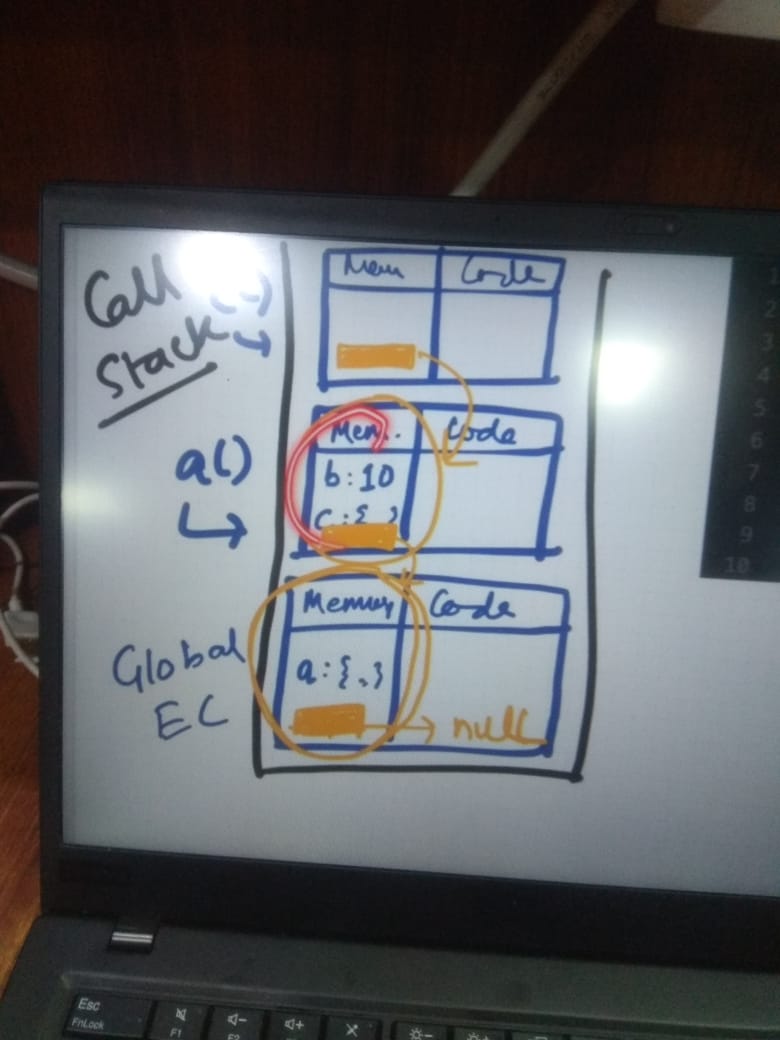 Call
Stack
Mem Code
a()
Mem. Code
b:10
c:{ }
Global
EC
Memory Code
a:{.}
null
1
2
3
4
5
6
7
8
9
10
Esc
FnLock
F1
F2